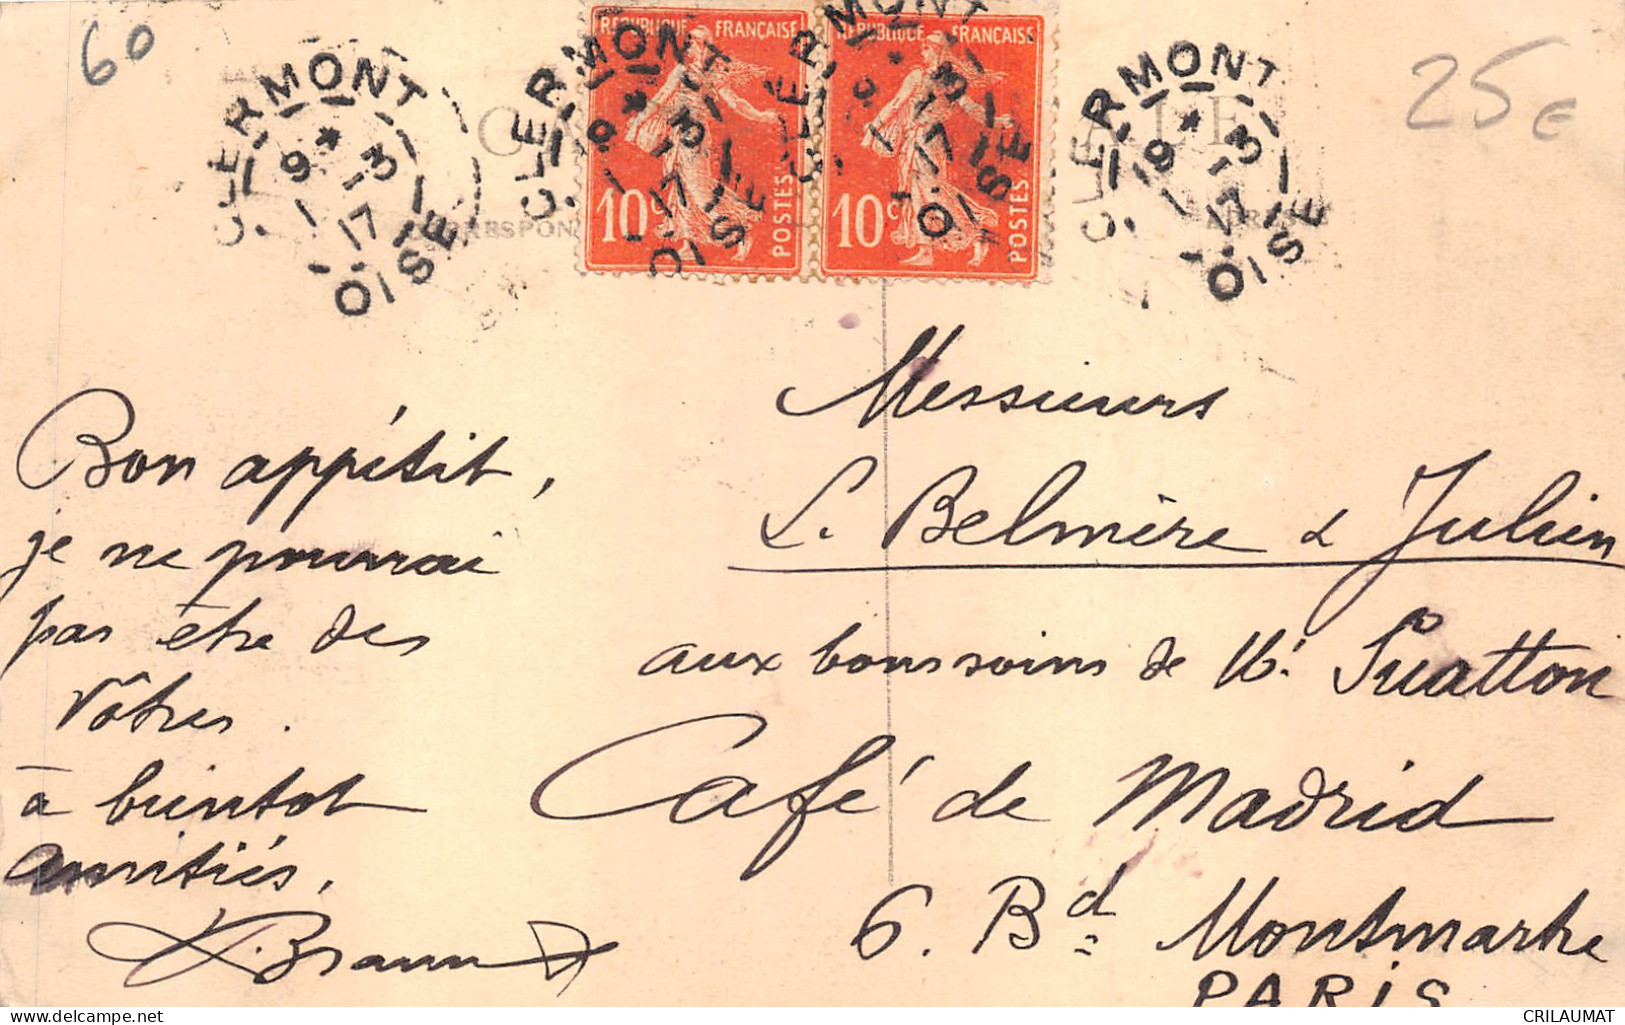 60
25€
CLERMONT
9*
1 -3
17
OISE
CLERMONT
9*
1 -3
17
OISE
CLERMONT
9*
1 -3
17
OISE
CLERMONT
9*
1 -3
17
OISE
REPUBLIQUE FRANÇAISE
10c
POSTES
REPUBLIQUE FRANÇAISE
10c
POSTES
Bon appétit,
je ne pourrai
pas être des
vôtres.
à bientot
amitiés,
Braun
Messieurs
L. Belmère & Julien
aux bons soins de Mr
Café de Madrid
6. Bd Montmartre
PARIS
delcampe.net
CRILAUMAT